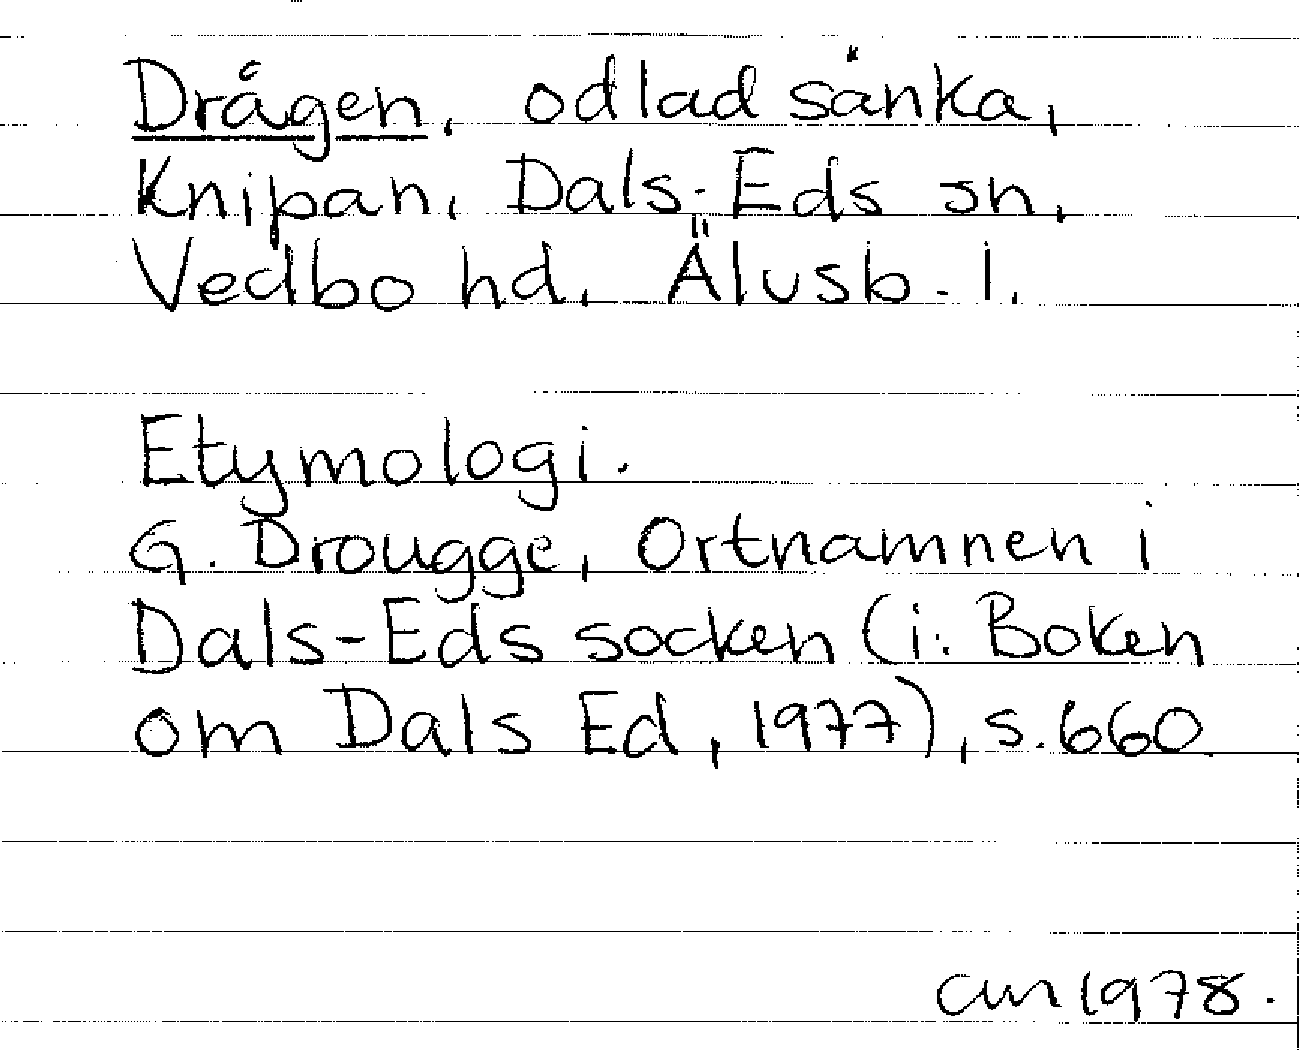 Drågen, odlad sänka,
Knipan, Dals-Eds sn,
Vedbo hd, Älvsb. l.
Etymologi.
G. Drougge, Ortnamnen i
Dals-Eds socken (i: Boken
om Dals Ed, 1977), s. 660
1978.